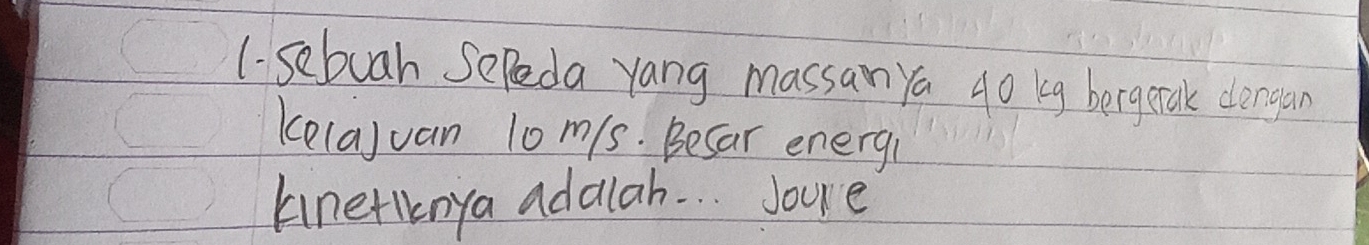 1. Sebuah Sepeda yang massanya 40 kg bergerak dengan
kelajuan 10 m/s. Besar energi
kinetiknya adalah... Joule